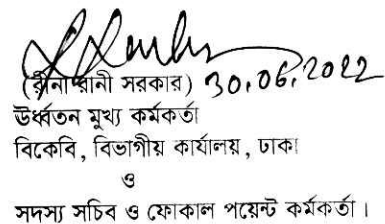 (রীনা রানী সরকার) 30.06.2022
উর্ধ্বতন মুখ্য কর্মকর্তা
বিকেবি, বিভাগীয় কার্যালয়, ঢাকা
ও
সদস্য সচিব ও ফোকাল পয়েন্ট কর্মকর্তা।